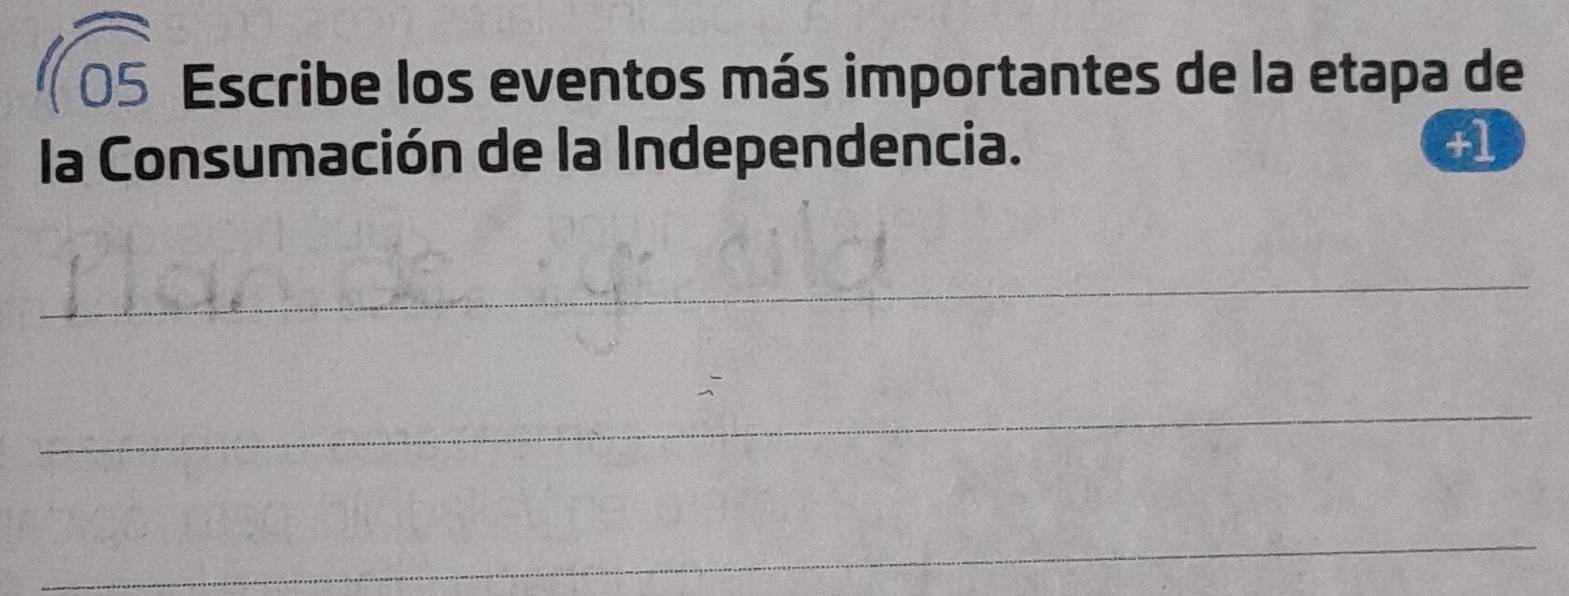 05 Escribe los eventos más importantes de la etapa de
la Consumación de la Independencia.
+1
Plan de iguala